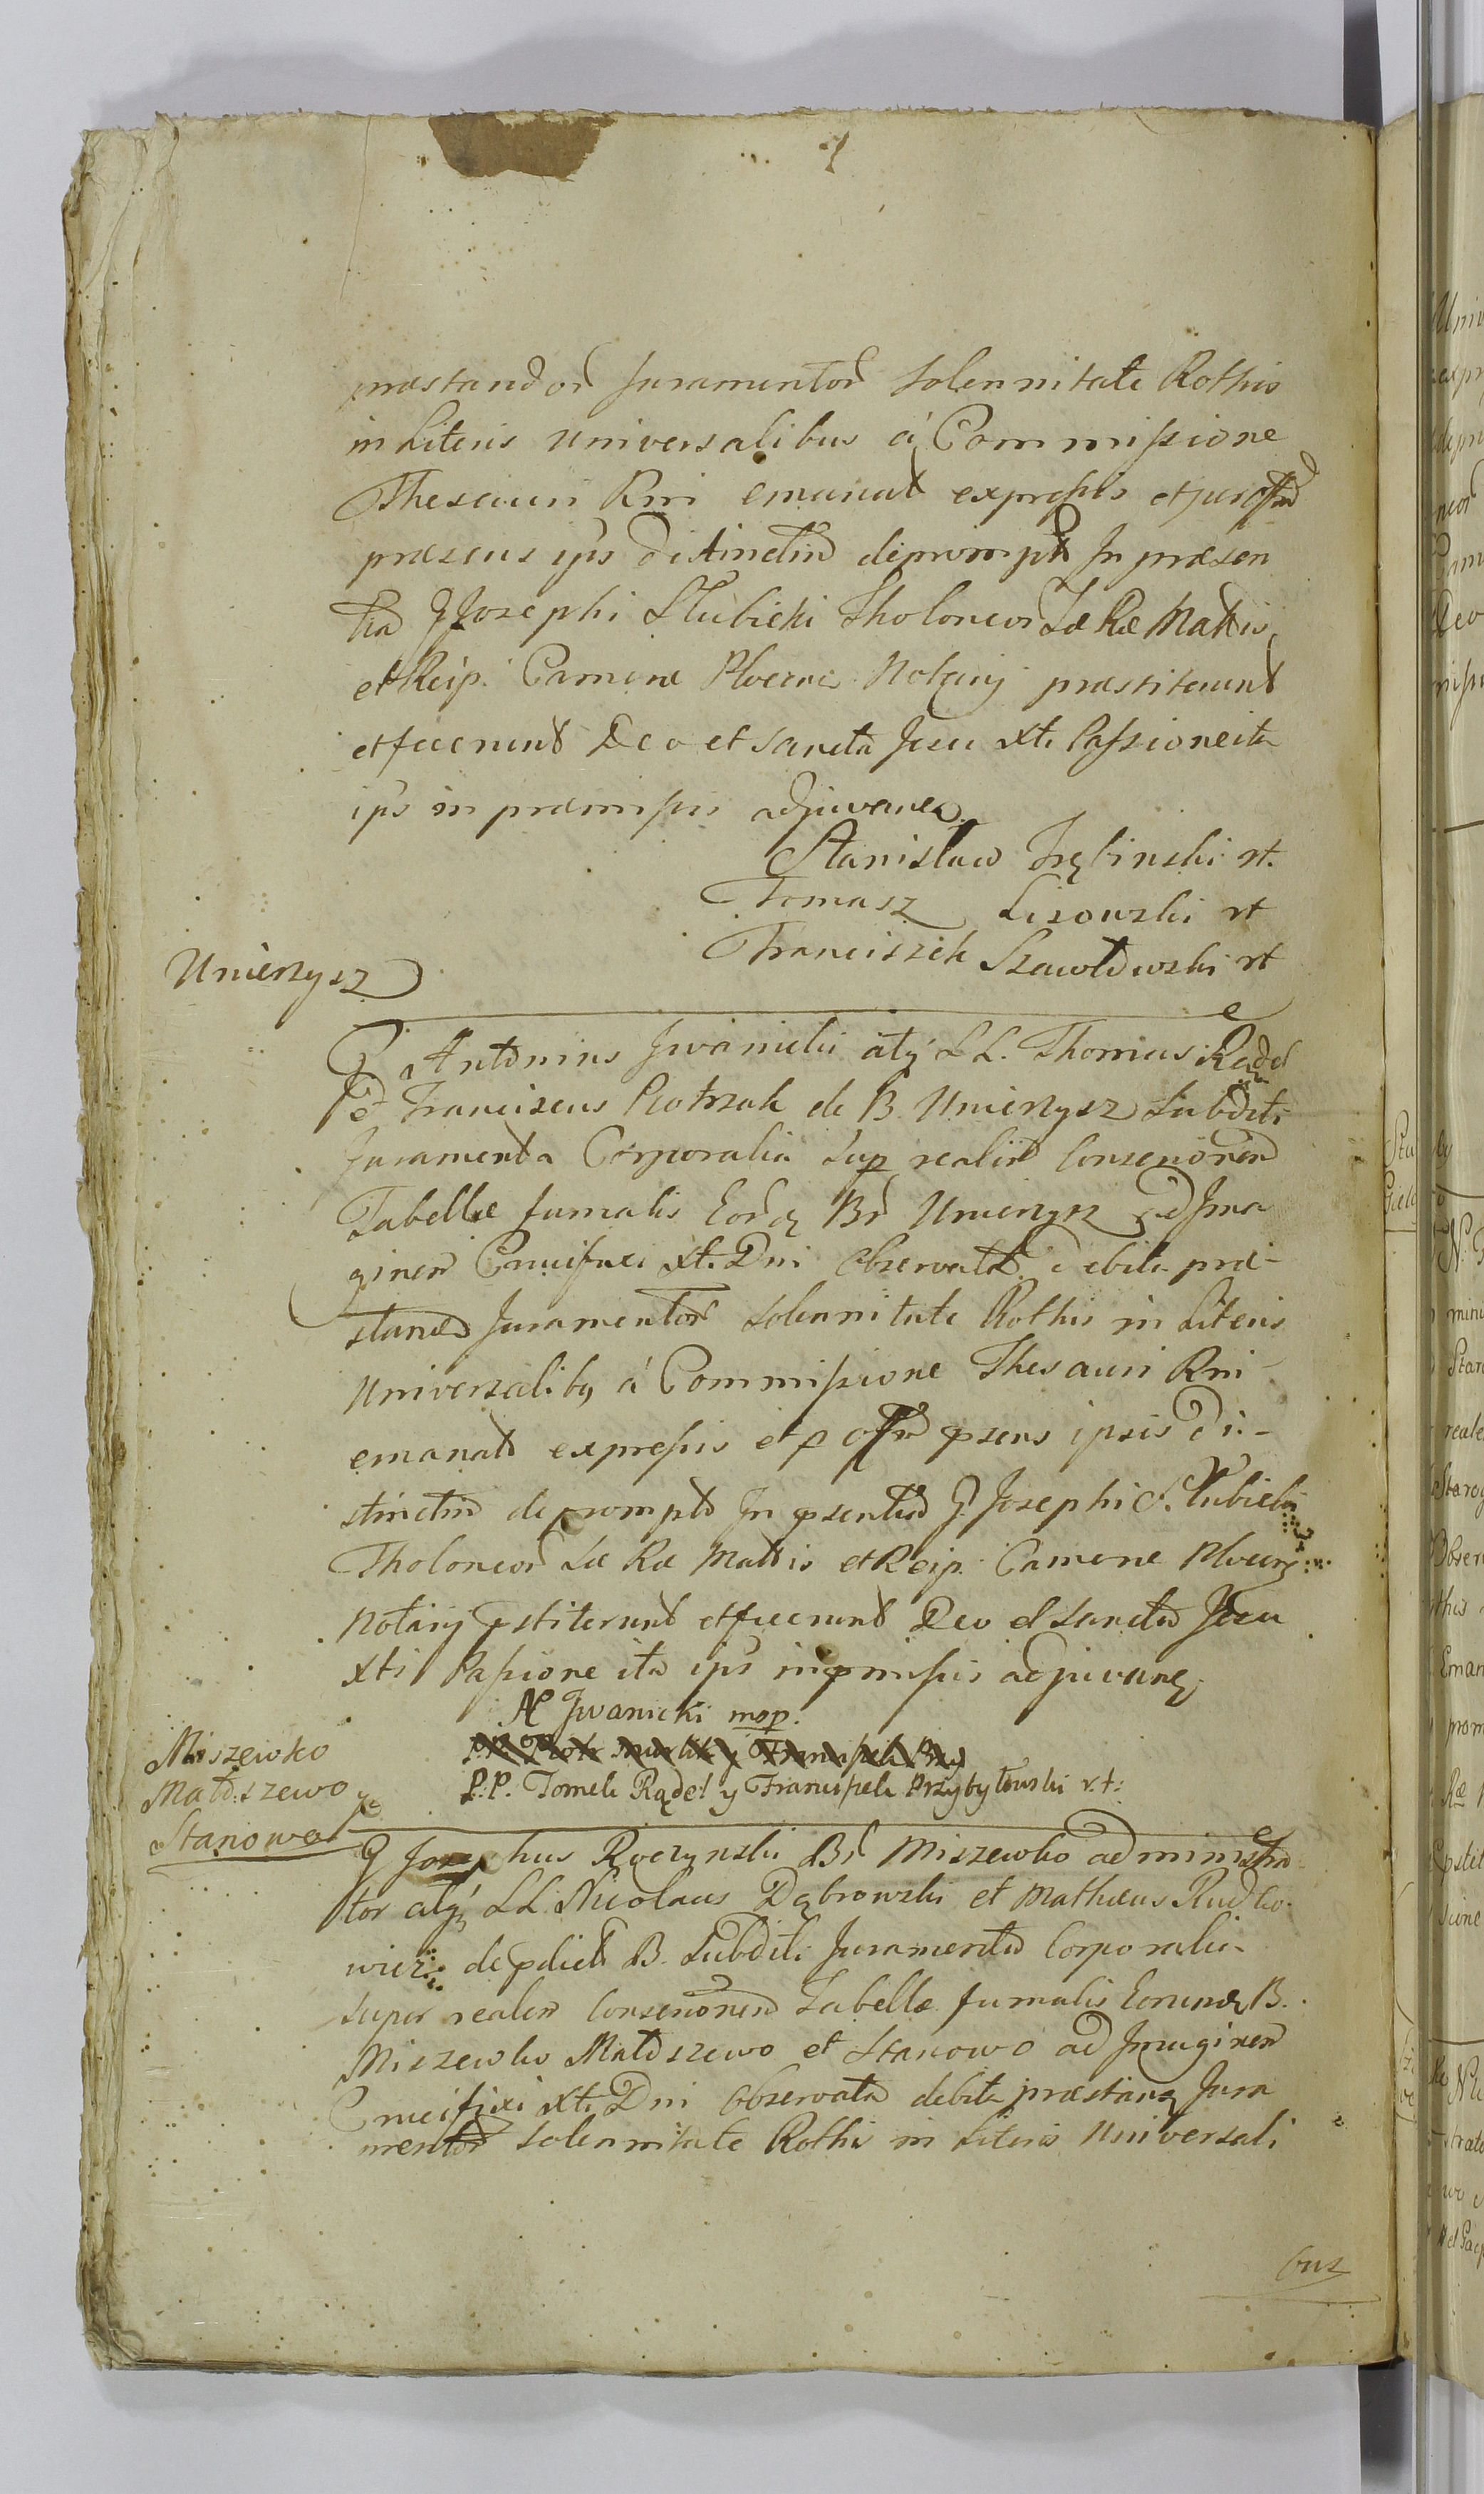 præstandor Juramentor Solennitate Rothis
in Literis Universalibus á Commissione
Thesauri Rni emanat expressis et per
præsens ips distinctim deprompt In præsen
tia G Josephi Słubicki Theloneor Sæ Ræ Mattis
et Reip. Camere Plocens Notarij præstiterunt
et fecerunt Deo et Sancta Jesu Xti Passione ita
ips in præmissis adjuvane.
Stanisław Trębinski rt.
Tomasz Lisowski rt
Franciszek rt
Unierzysz
G Antonius Iwanicki atq LL. Thomas Rądel
et Franciscus Piotrzak de B. Unierzysz Subditi
Juramenta Corporalia Sup realem Conscriõnem
Tabellæ fumalis Eorq Br Unierzysz ad Ima
ginem Crucifixi Xti Dni Observata debita præ-
stand Juramentor Solennitate Rothis in Literis
Universalibq á Commissione Thesauri Rni
emanat expressis et p psens ipsis Di-
stinctim deprompt In psentia G. Josephi Słubicki
Theloneor Sæ Ræ Mattis et Reip. Camere Plocens
Notarij pstiterunt et fecerunt Deo et Sancta Jesu
Xti Passione ita ips in pmissis adjuvane
A Iwanicki mop.
P.P. Tomek Rądel y Franciszek Przybyłowski r.t:
Miszewko
Małoszewo y
Stanowo
G Josephus Ryczynski Br Miszewko administra
tor atq LL Nicolaus Dąbrowski et Mathæus Rudko
wicz de pdict B. Subditi Juramenta Corporalia
Super realem Conscriõnem Tabellæ fumalis Eorunq B.
Miszewko Małoszewo et Stanowo ad Imaginem
Crucifixi Xti Dni Observata debita præstanq Jura
mentor Solennitate Rothis in Literis Universali
bus